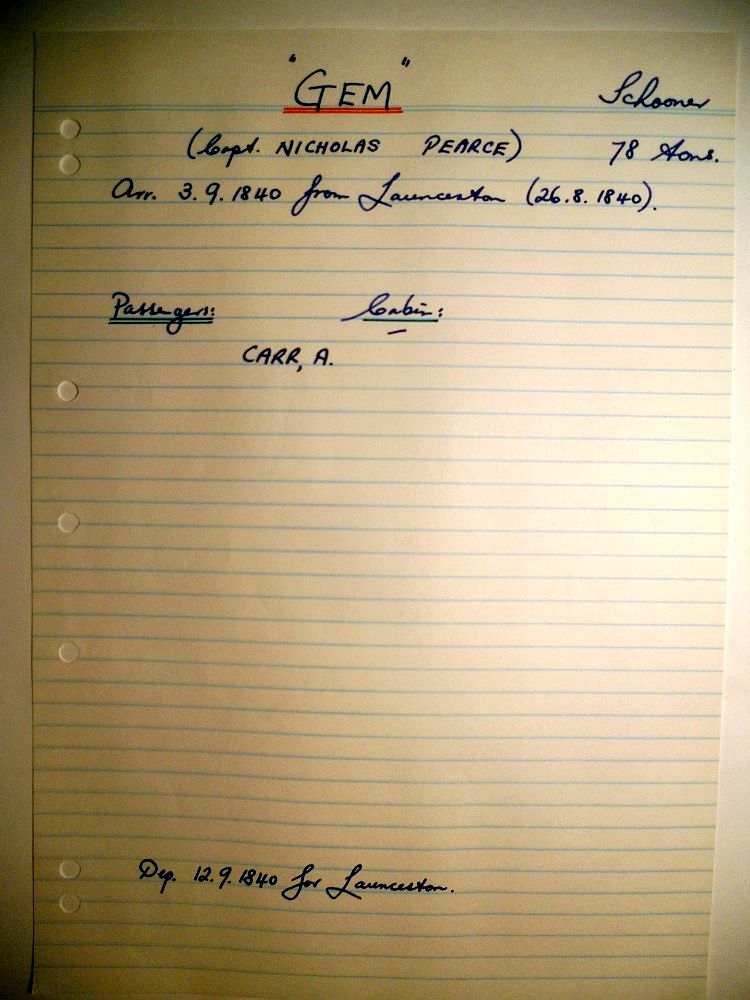 "GEM" Schooner
(Capt. NICHOLAS PEARCE) 78 tons.
Arr. 3.9.1840 from Launceston (26.8.1840).
Passengers: Cabin:
CARR, A.
Dep. 12.9.1840 for Launceston.